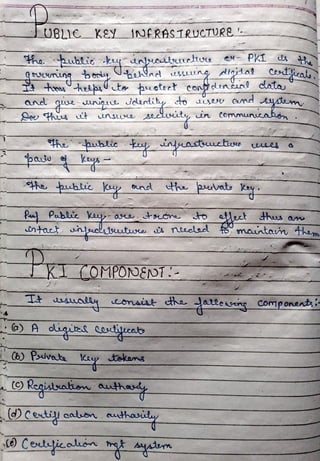 PUBLIC KEY INFRASTRUCTURE :-
The public key infrastructure or PKI is the
governing body behind issuing digital certificate.
It helps to protect confidencial data
and give unique identity to user and system
Thus it insure security in communication.
The public key infrastructure uses a
pair of keys -
The public key and the private key.
Public key are prone to effect thus an
intact infrastruture is needed to maintain them
PKI COMPONENT:-
It usually consist the following components:-
(a) A digital certificate
(b) Private key tokens
(c) Registration authority
(d) Certification authority
(e) Certification mgt system